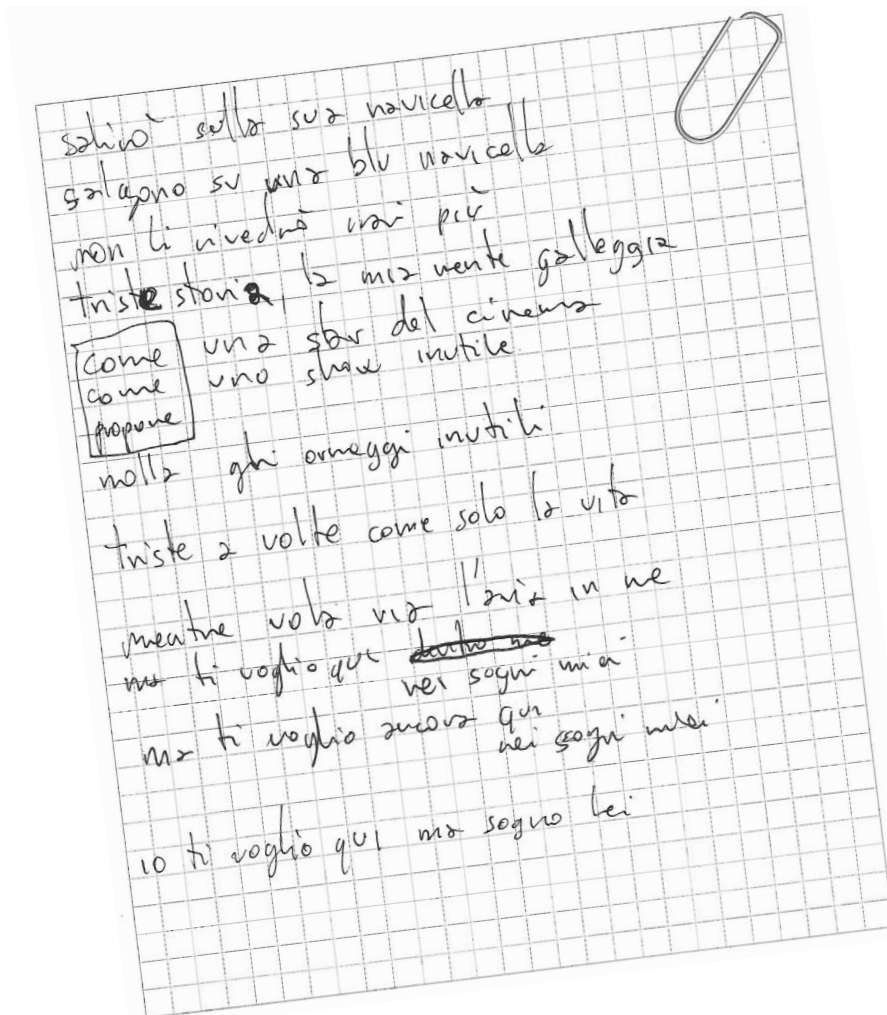 salirò sulla sua navicella
salgono su una blu navicella
non li rivedrò mai più
triste storia, la mia mente galleggia
come una star del cinema
come uno show inutile
propone
molla gli ormeggi inutili
triste a volte come solo la vita
mentre vola via l'aria in me
ma ti voglio qui dentro me
nei sogni miei
ma ti voglio ancora qui
nei sogni miei
io ti voglio qui ma sogno lei